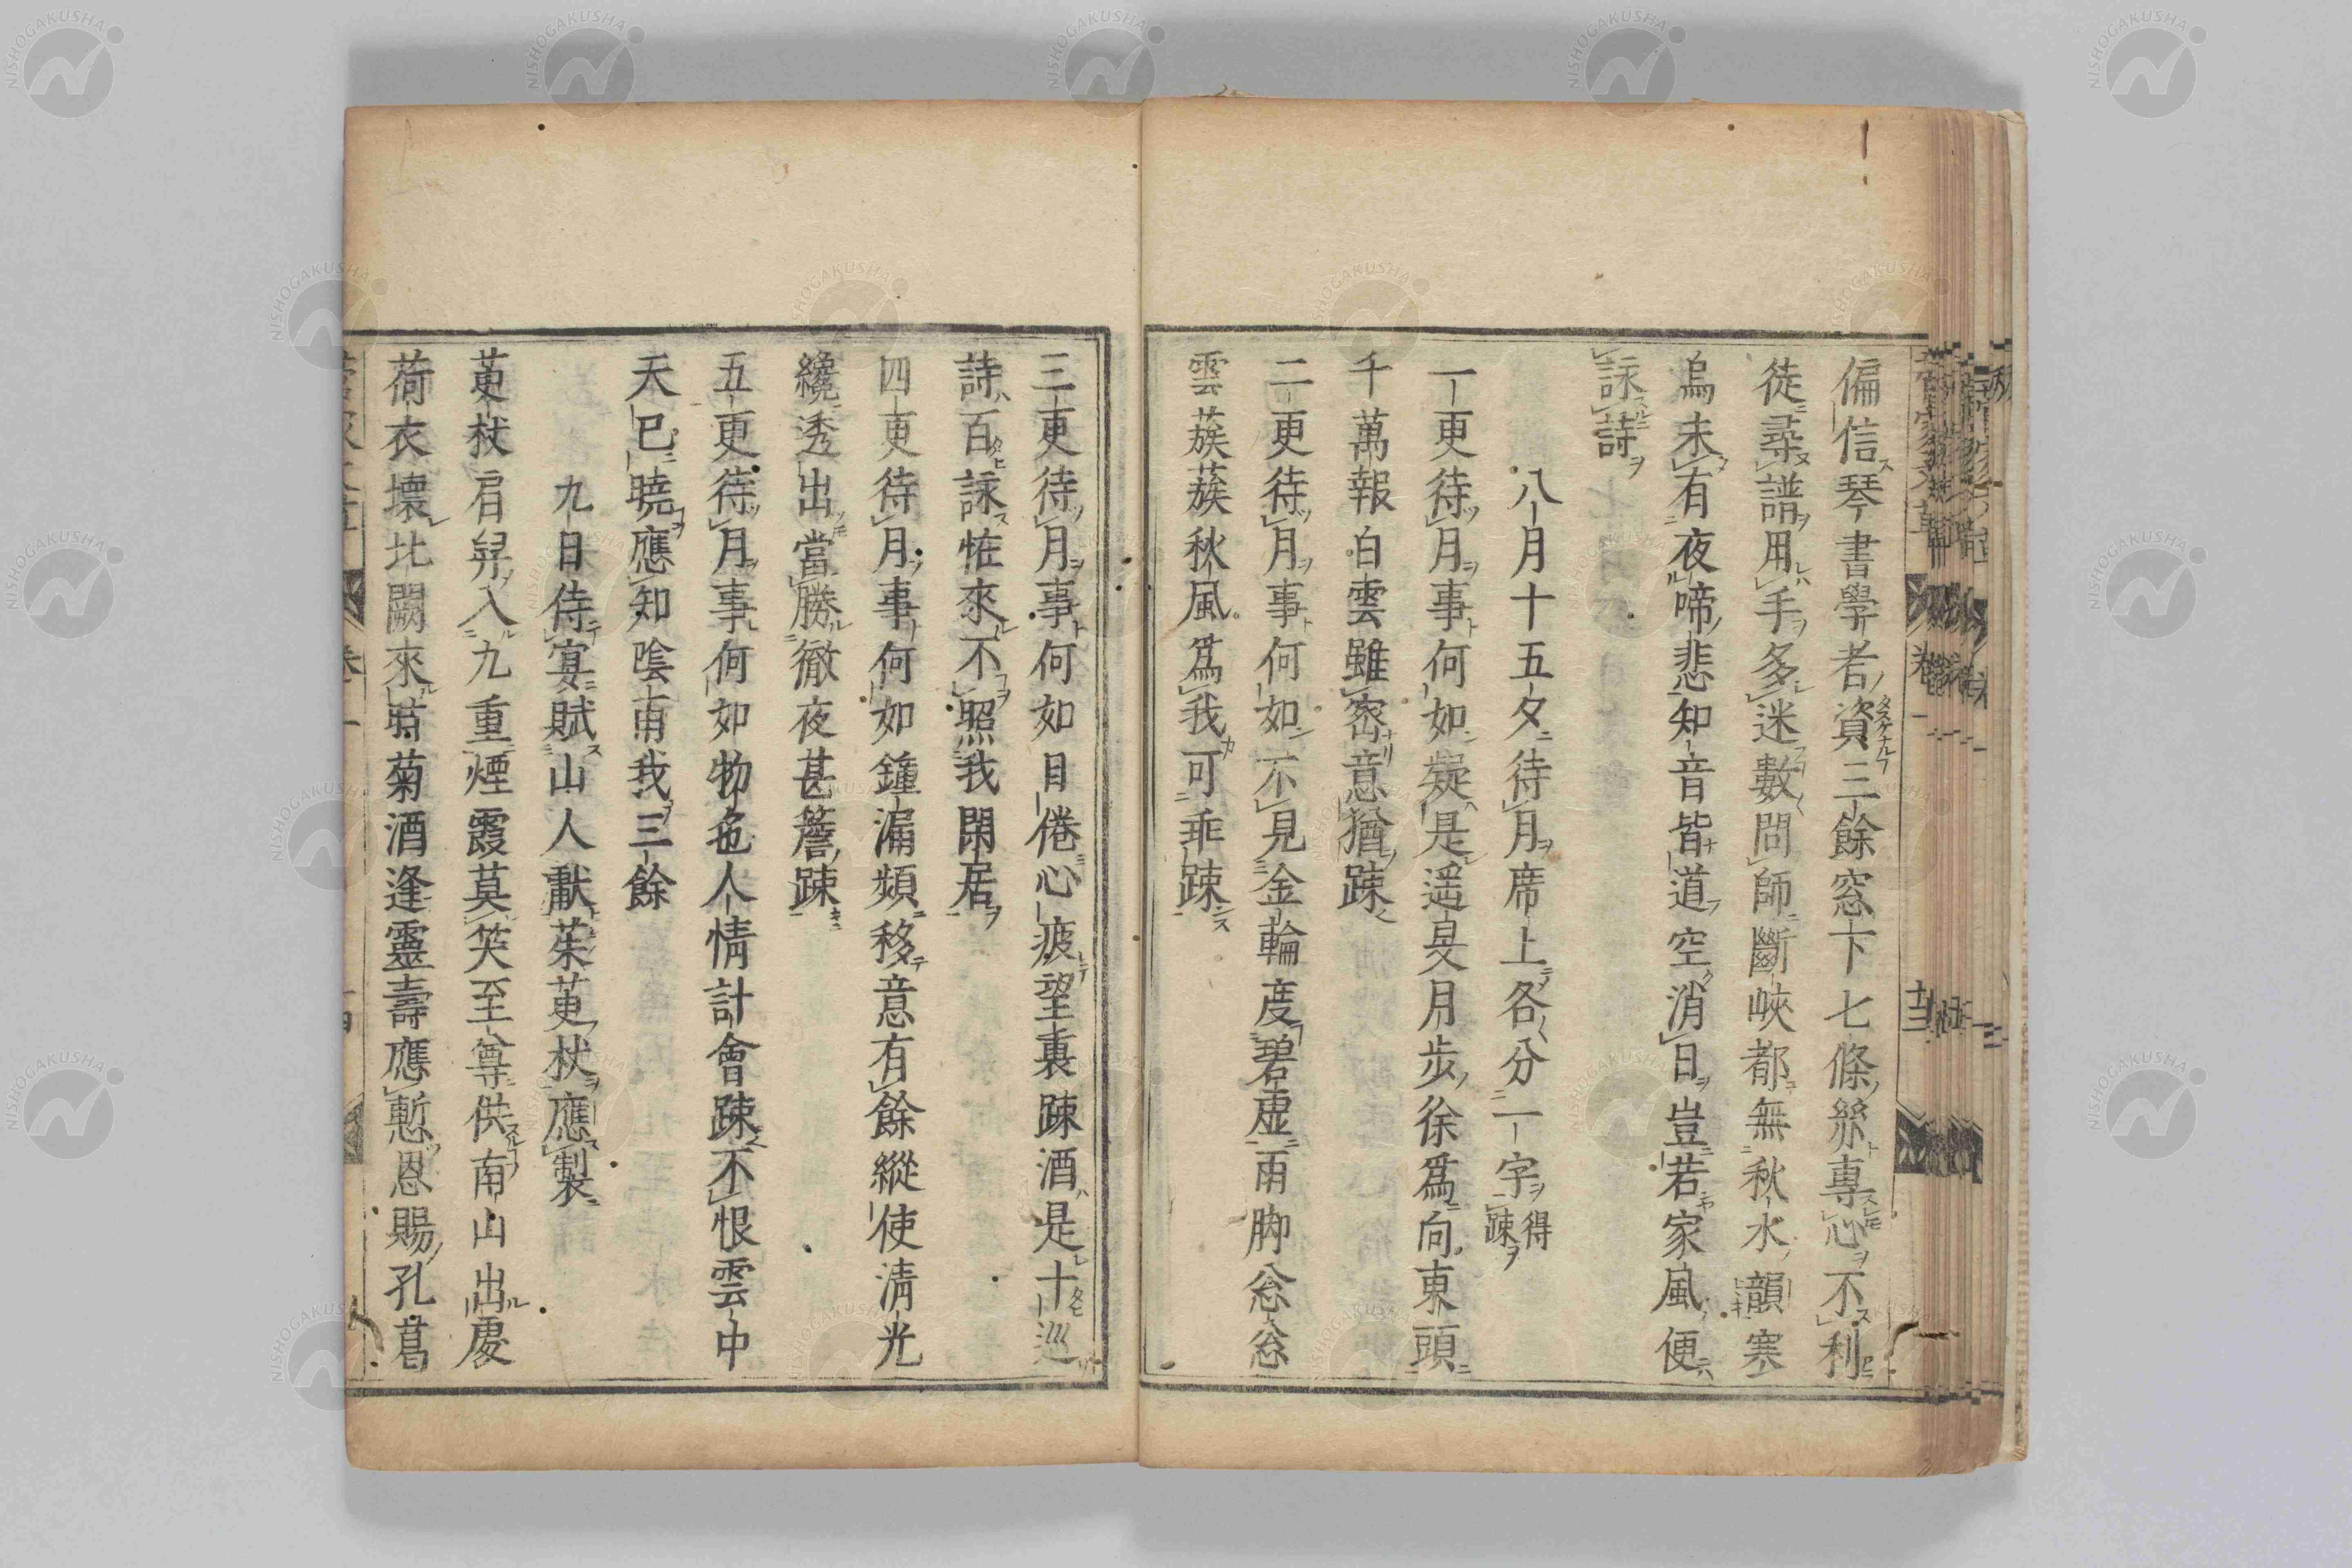 偏信琴書學者資三餘窓下七條絲專心不利
徒尋譜用手多迷數問師斷峽都無秋水韻寒
烏未有夜啼悲知音皆道空消日豈若家風便
詠詩
八月十五夕待月席上各分一字得踈
一更待月事何如疑是遥旻月步徐爲向東頭
千萬報白雲雖密意猶踈
二更待月事何如不見金輪度碧虚雨脚忩忩
雲蔟蔟秋風爲我可乖踈
三更待月事何如目倦心疲望裏踈酒是十巡
詩百詠恠來不照我閑居
四更待月事何如鐘漏頻移意有餘縱使淸光
纔透出當勝徹夜甚簷踈
五更待月事何如物色人情計會踈不恨雲中
天已曉應知隂雨我三餘
九日侍宴賦山人獻茱萸杖應製
萸杖肩舁入九重煙霞莫笑至尊供南山出處
荷衣壞北闕來時菊酒逢靈壽應慙恩賜孔葛
卷一
NISHOGAKUSHA